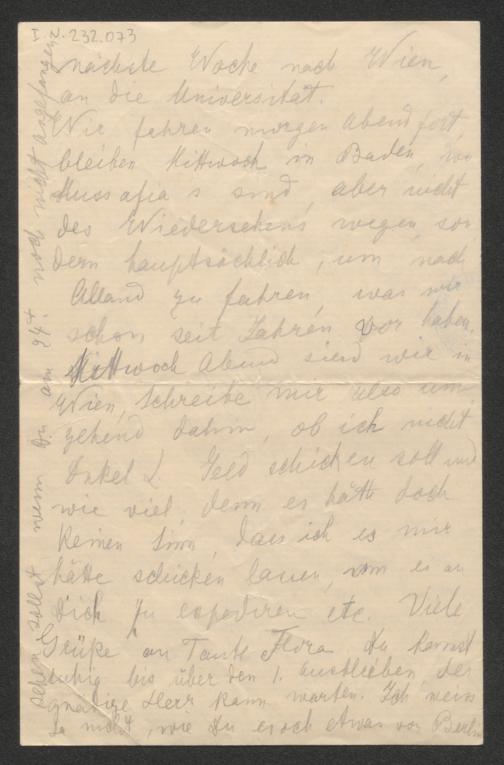 I.N. 232.073
nächste Woche nach Wien,
an die Universität.
Wir fahren morgen Abend fort,
bleiben Mittwoch in Baden, wo
Mussafia's sind, aber nicht
des Wiedersehens wegen, son
dern hauptsächlich, um nach
Alland zu fahren, was wir
schon seit Jahren vor haben.
Mittwoch Abend sind wir in
Wien, schreibe mir also um
gehend dahin, ob ich nicht
Onkel L. Geld schicken soll und
wie viel, denn es hätte doch
keinen Sinn, dass ich es mir
hätte schicken lassen, um es an
Dich zu expediren etc. Viele
Grüße an Tante Flora Du kannst
ruhig bis über den 1. ausbleiben, der
gnädige Herr kann warten. Ich weiss
ja nicht, wie Du es doch etwas von Berlin
sehen sollst wenn Du am 24t. noch nicht angefangen